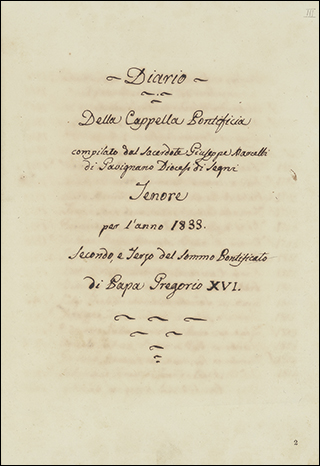 III
~ Diario ~
Della Cappella Pontificia
compilato dal Sacerdote Giuseppe
di Gavignano Diocesi di Segni
Tenore
per l'anno 1833.
Secondo, e Terzo del Sommo Pontificato
di Papa Gregorio XVI.
2